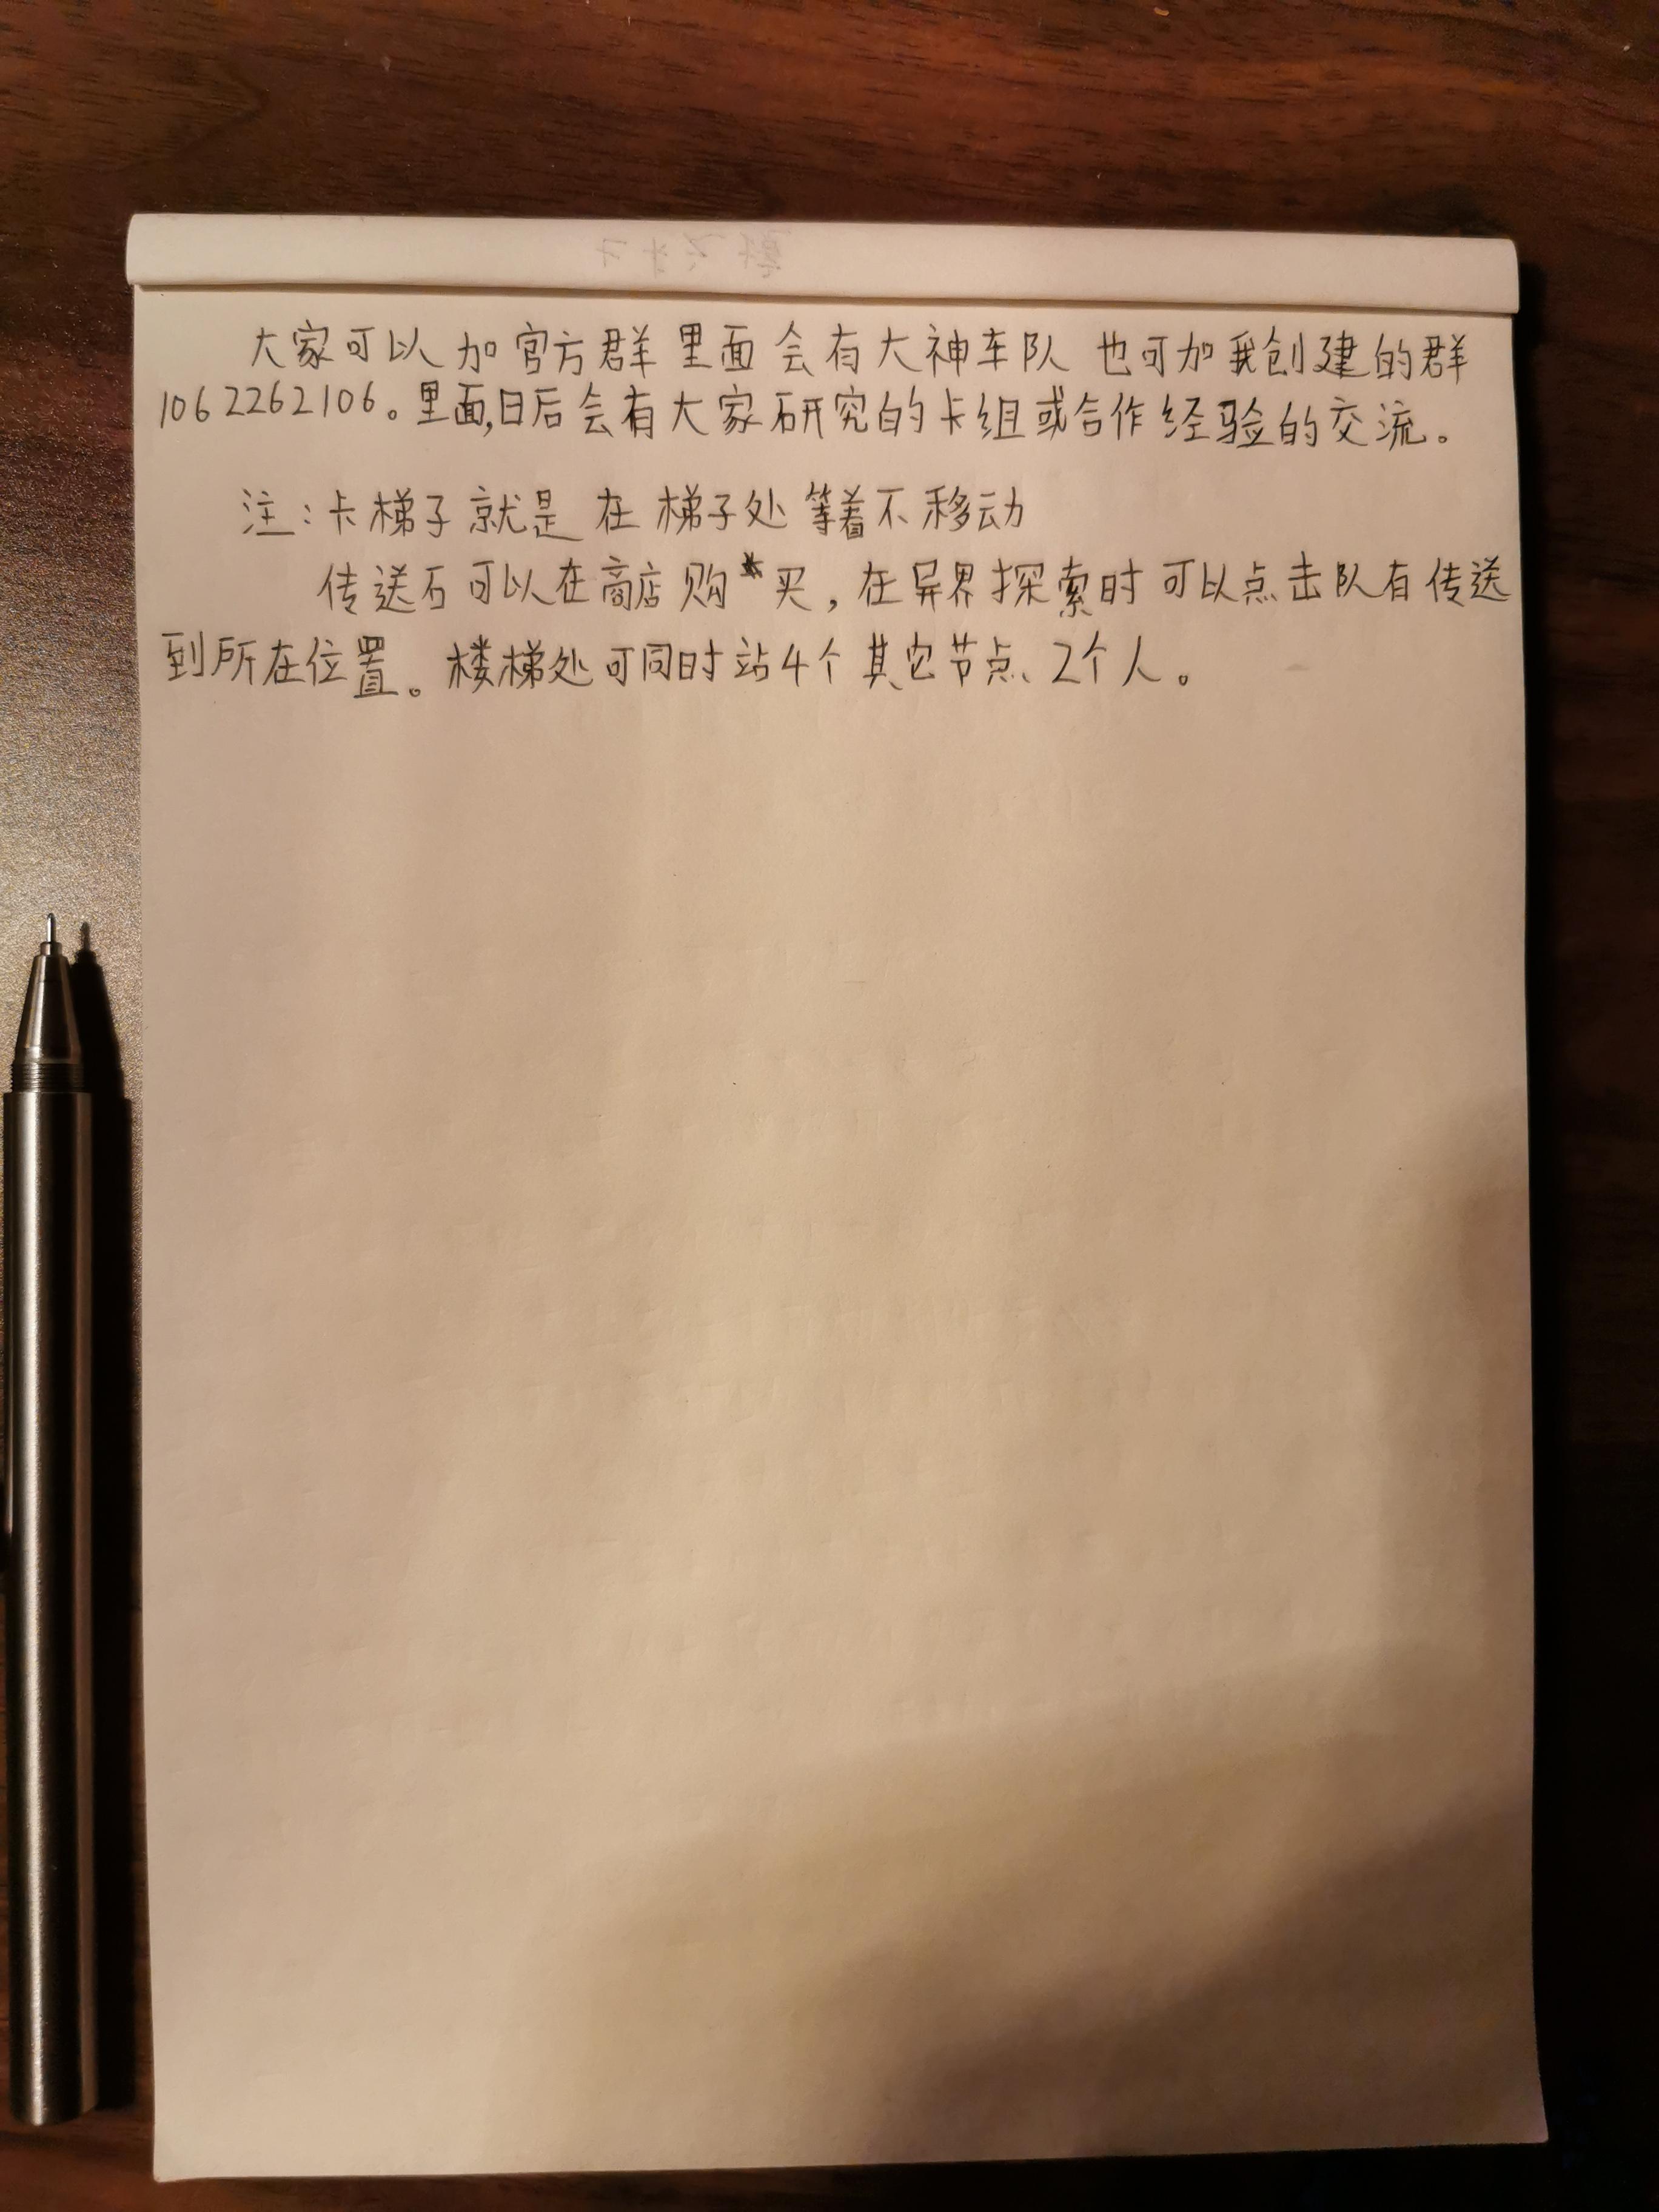 大家可以加官方群里面会有大神车队 也可加我创建的群
1062262106。里面,日后会有大家研究的卡组或合作经验的交流。
注:卡梯子就是在梯子处等着不移动
传送石可以在商店购买,在异界探索时可以点击队有传送
到所在位置。楼梯处可同时站4个其它节点、2个人。